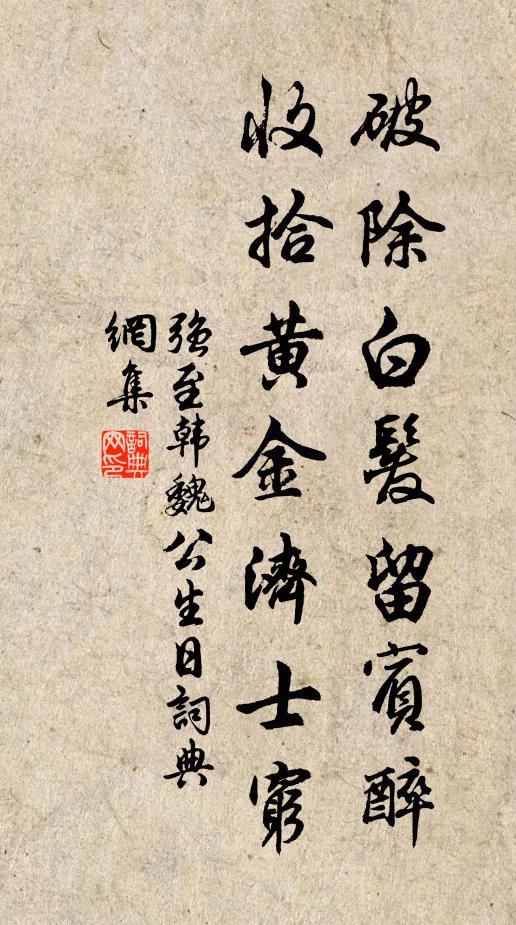 破除白髮留賓醉
收拾黃金濟士窮
強至韩魏公生日詞典
網集
詞典
网印